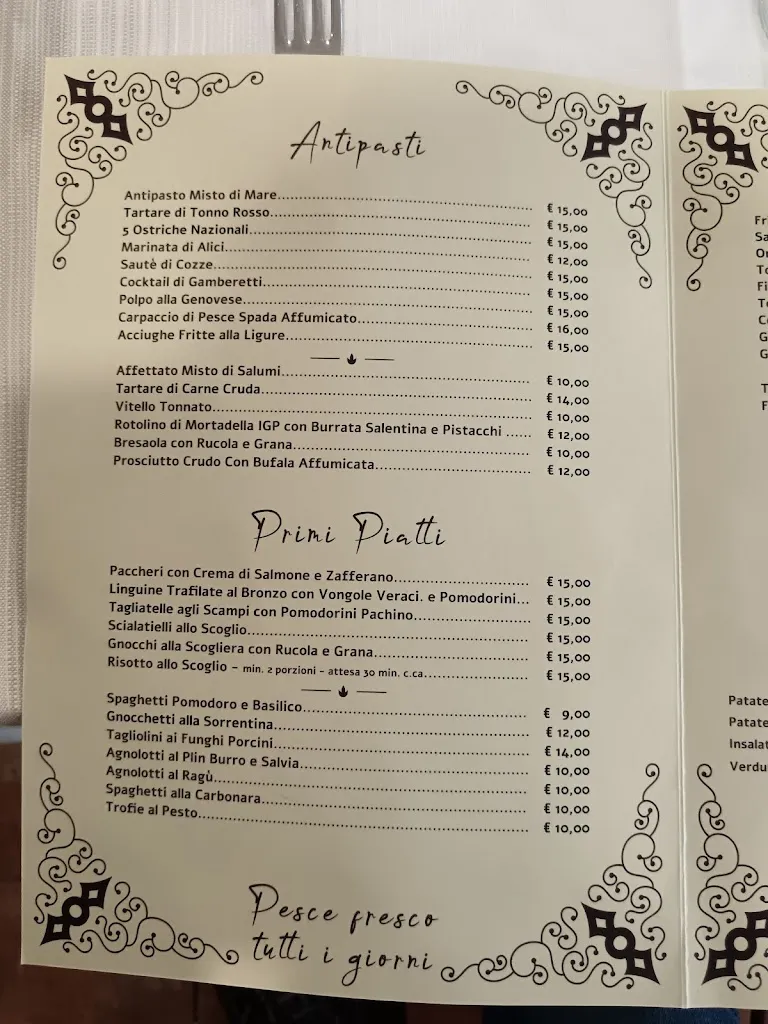 Antipasti
Antipasto Misto di Mare........ € 15,00
Tartare di Tonno Rosso........ € 15,00
5 Ostriche Nazionali........ € 15,00
Marinata di Alici........ € 12,00
Sautè di Cozze........ € 15,00
Cocktail di Gamberetti........ € 15,00
Polpo alla Genovese........ € 15,00
Carpaccio di Pesce Spada Affumicato........ € 16,00
Acciughe Fritte alla Ligure........ € 15,00
Affettato Misto di Salumi........ € 10,00
Tartare di Carne Cruda........ € 14,00
Vitello Tonnato........ € 10,00
Rotolino di Mortadella IGP con Burrata Salentina e Pistacchi ...... € 12,00
Bresaola con Rucola e Grana........ € 10,00
Prosciutto Crudo Con Bufala Affumicata........ € 12,00
Primi Piatti
Paccheri con Crema di Salmone e Zafferano........ € 15,00
Linguine Trafilate al Bronzo con Vongole Veraci. e Pomodorini... € 15,00
Tagliatelle agli Scampi con Pomodorini Pachino........ € 15,00
Scialatielli allo Scoglio........ € 15,00
Gnocchi alla Scogliera con Rucola e Grana........ € 15,00
Risotto allo Scoglio - min. 2 porzioni - attesa 30 min. c.ca........ € 15,00
Spaghetti Pomodoro e Basilico........ € 9,00
Gnocchetti alla Sorrentina........ € 12,00
Tagliolini ai Funghi Porcini........ € 14,00
Agnolotti al Plin Burro e Salvia........ € 10,00
Agnolotti al Ragù........ € 10,00
Spaghetti alla Carbonara........ € 10,00
Trofie al Pesto........ € 10,00
Pesce fresco
tutti i giorni
Patate
Patate
Insalat
Verdu